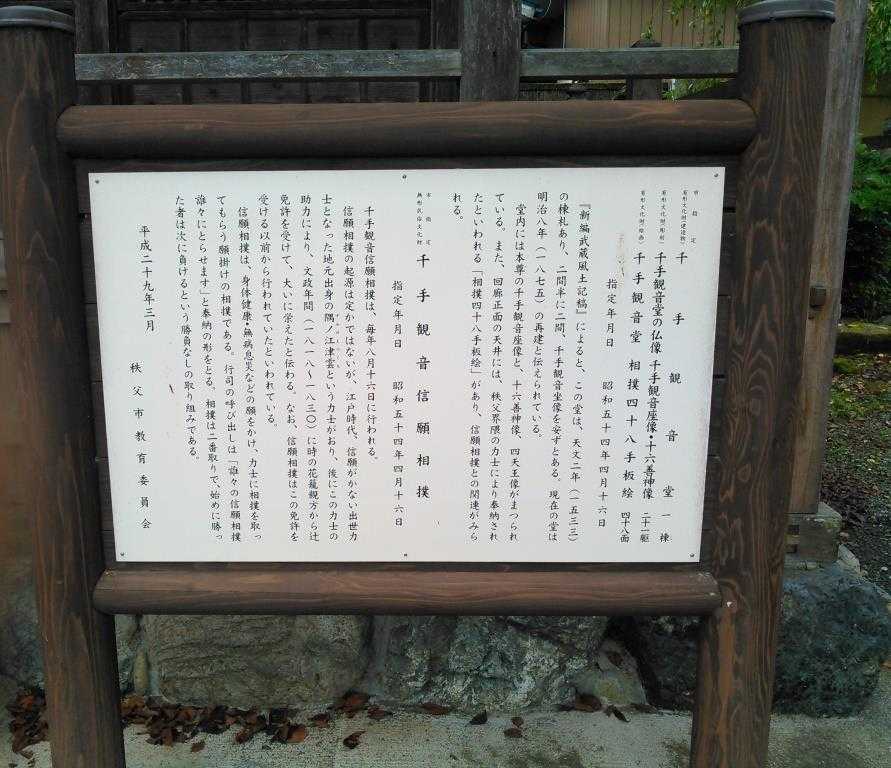 市指定
有形文化財(建造物) 千手観音堂 一棟
有形文化財(彫刻) 千手観音堂の仏像 千手観音座像・十六善神像 二十一躯
有形文化財(絵画) 千手観音堂 相撲四十八手板絵 四十八面
指定年月日 昭和五十四年四月十六日
『新編武蔵風土記稿』によると、この堂は、天文二年(一五三三)
の棟札あり、二間半に二間、千手観音坐像を安ずとある。現在の堂は
明治八年(一八七五)の再建と伝えられている。
堂内には本尊の千手観音座像と、十六善神像、四天王像がまつられ
ている。また、回廊正面の天井には、秩父界隈の力士により奉納され
たといわれる「相撲四十八手板絵」があり、信願相撲との関連がみら
れる。
市指定
無形民俗文化財 千手観音信願相撲
指定年月日 昭和五十四年四月十六日
千手観音信願相撲は、毎年八月十六日に行われる。
信願相撲の起源は定かではないが、江戸時代、信願がかない出世力
士となった地元出身の隅ノ江津雲という力士がおり、後にこの力士の
助力により、文政年間(一八一八〜一八三〇)に時の花籠親方から辻
免許を受けて、大いに栄えたと伝わる。なお、信願相撲はこの免許を
受ける以前から行われていたといわれている。
信願相撲は、身体健康・無病息災などの願をかけ、力士に相撲を取っ
てもらう願掛けの相撲である。行司の呼び出しは「誰々の信願相撲
誰々にとらせます」と奉納の形をとる。相撲は二番取りで、始めに勝っ
た者は次に負けるという勝負なしの取り組みである。
平成二十九年三月
秩父市教育委員会